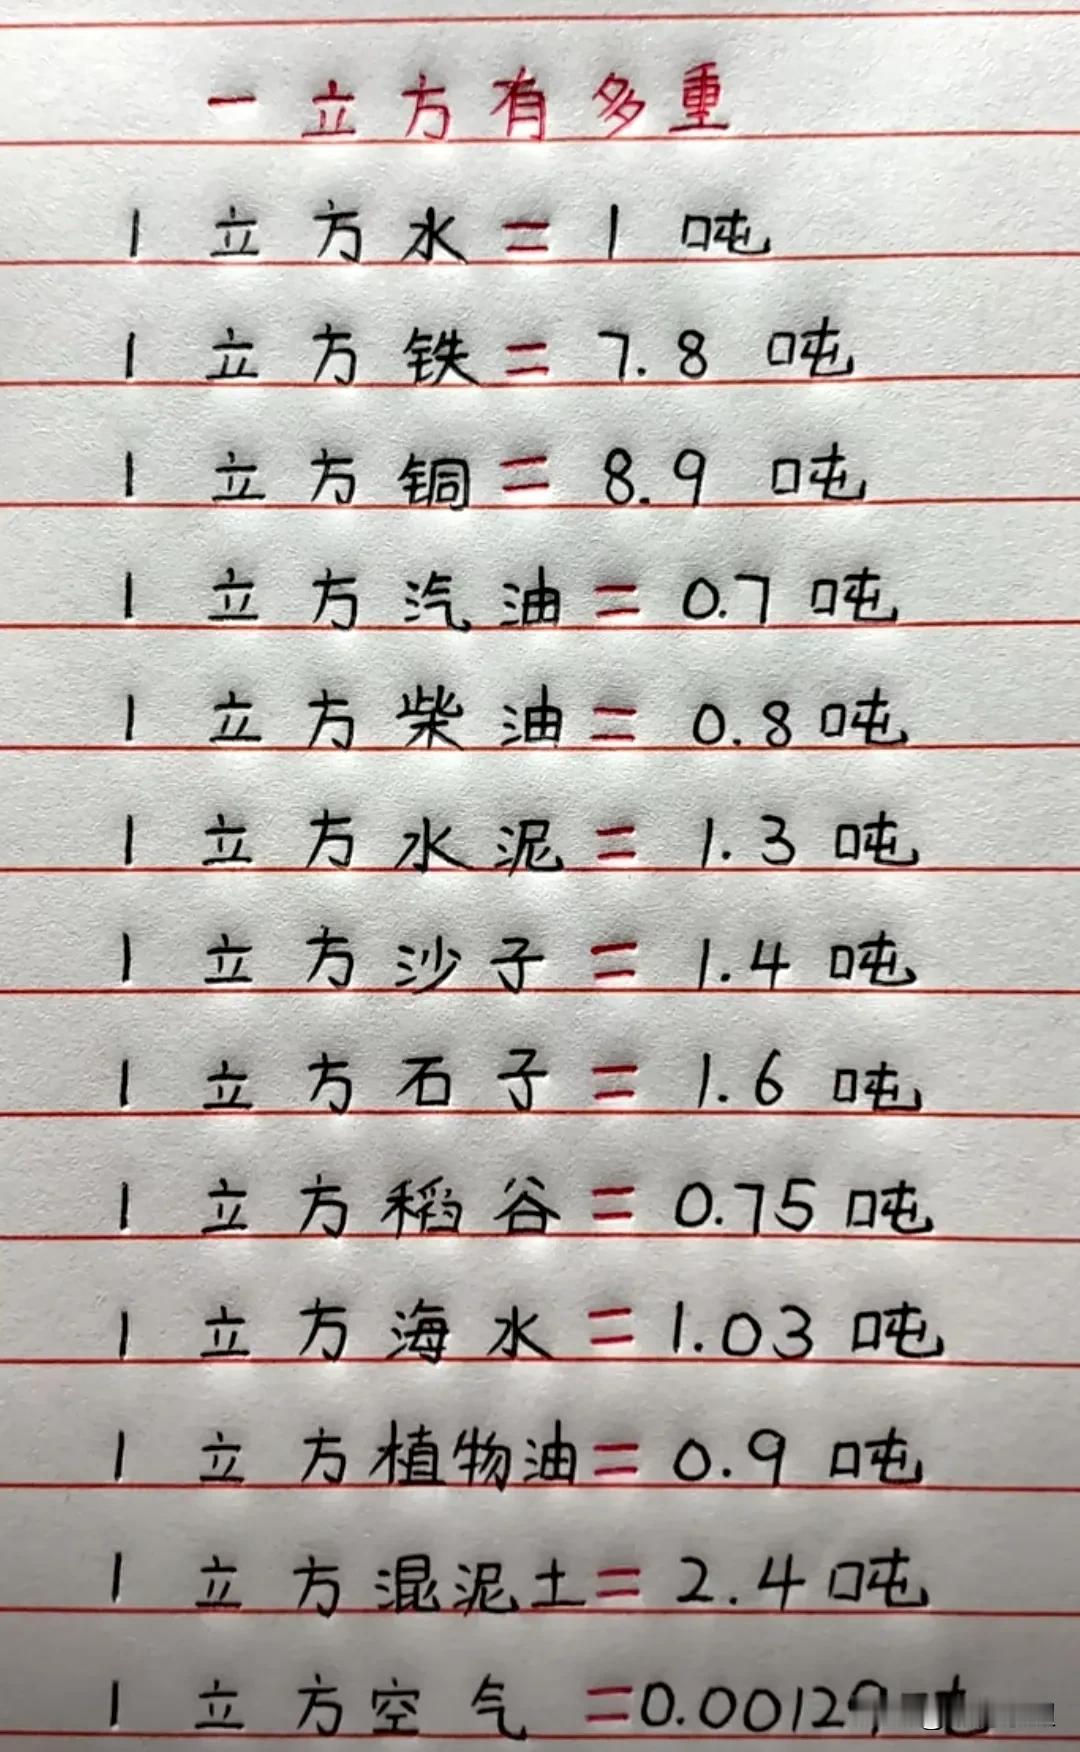 一立方有多重
1立方水=1吨
1立方铁=7.8吨
1立方铜=8.9吨
1立方汽油=0.7吨
1立方柴油=0.8吨
1立方水泥=1.3吨
1立方沙子=1.4吨
1立方石子=1.6吨
1立方稻谷=0.75吨
1立方海水=1.03吨
1立方植物油=0.9吨
1立方混泥土=2.4吨
1立方空气=0.00129吨